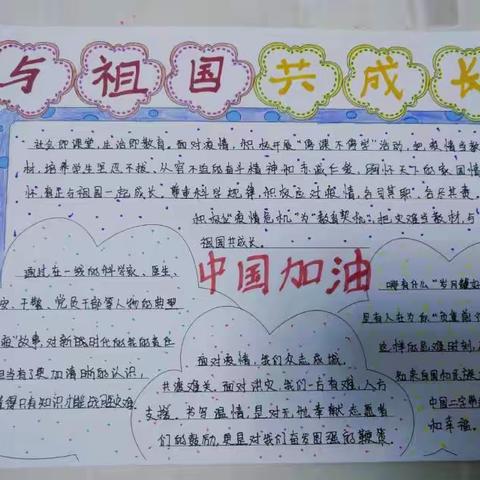 与祖国共成长
社会即课堂,生活即教育。面对疫情,积极开展“停课不停学”活动,把疫情当教
材,培养学生坚忍不拔、从容不迫的奋斗精神和赤诚仁爱、胸怀天下的家国情
怀,真正与祖国一起成长。尊重科学规律,积极应对疫情,各司其职、各尽其责,
积极变“疫情危机”为“教育契机”,把灾难当教材,与
祖国共成长。
中国加油
通过在一线的科学家、医生、
安、干警、党员干部等人物的典型
故事,对新时代的英的有色
担当有了更加清晰的认识,
懂得只有知识才能战胜灾难
面对疫情,我们众志成城,
共渡难关。面对洪灾,我们一方有难,八方
支援。书写温情,是对无私奉献志愿者
们的鼓励,更是对我们奋发图强的鞭策。
哪有什么“岁月静好
是有人在为你“负重前行
这样的危难时刻,
和幸福。